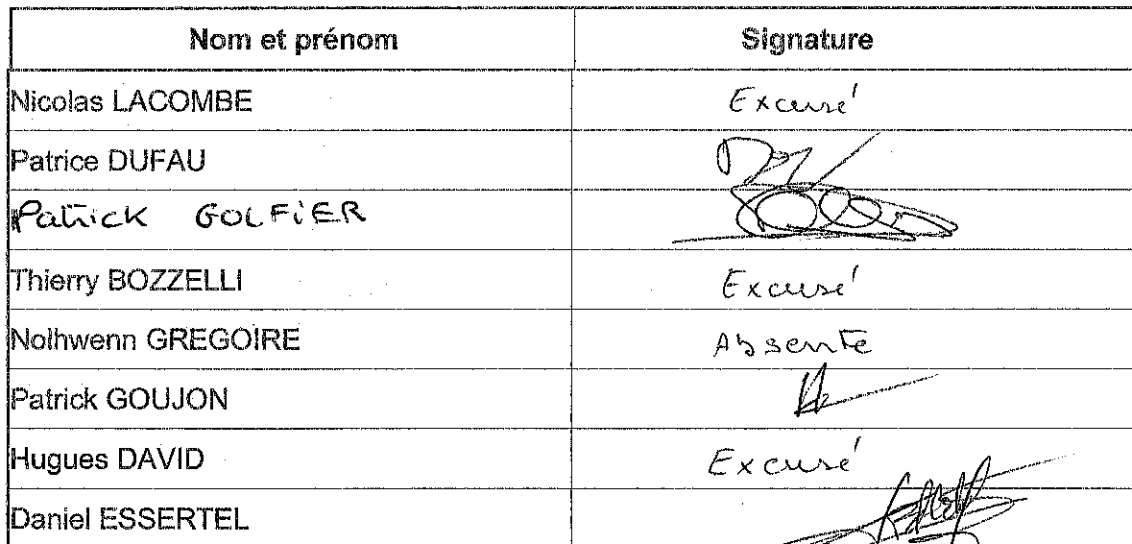 Nom et prénom Signature
Nicolas LACOMBE Excusé
Patrice DUFAU
Patrick GOLFiER
Thierry BOZZELLI Excusé
Nolhwenn GREGOIRE Absente
Patrick GOUJON
Hugues DAVID Excusé
Daniel ESSERTEL